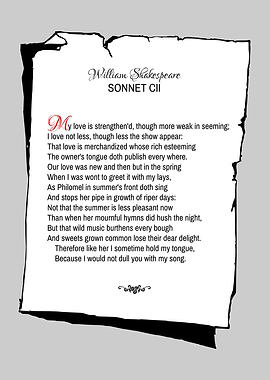 William Shakespeare
SONNET CII
My love is strengthen'd, though more weak in seeming;
I love not less, though less the show appear:
That love is merchandized whose rich esteeming
The owner's tongue doth publish every where.
Our love was new and then but in the spring
When I was wont to greet it with my lays,
As Philomel in summer's front doth sing
And stops her pipe in growth of riper days:
Not that the summer is less pleasant now
Than when her mournful hymns did hush the night,
But that wild music burthens every bough
And sweets grown common lose their dear delight.
Therefore like her I sometime hold my tongue,
Because I would not dull you with my song.